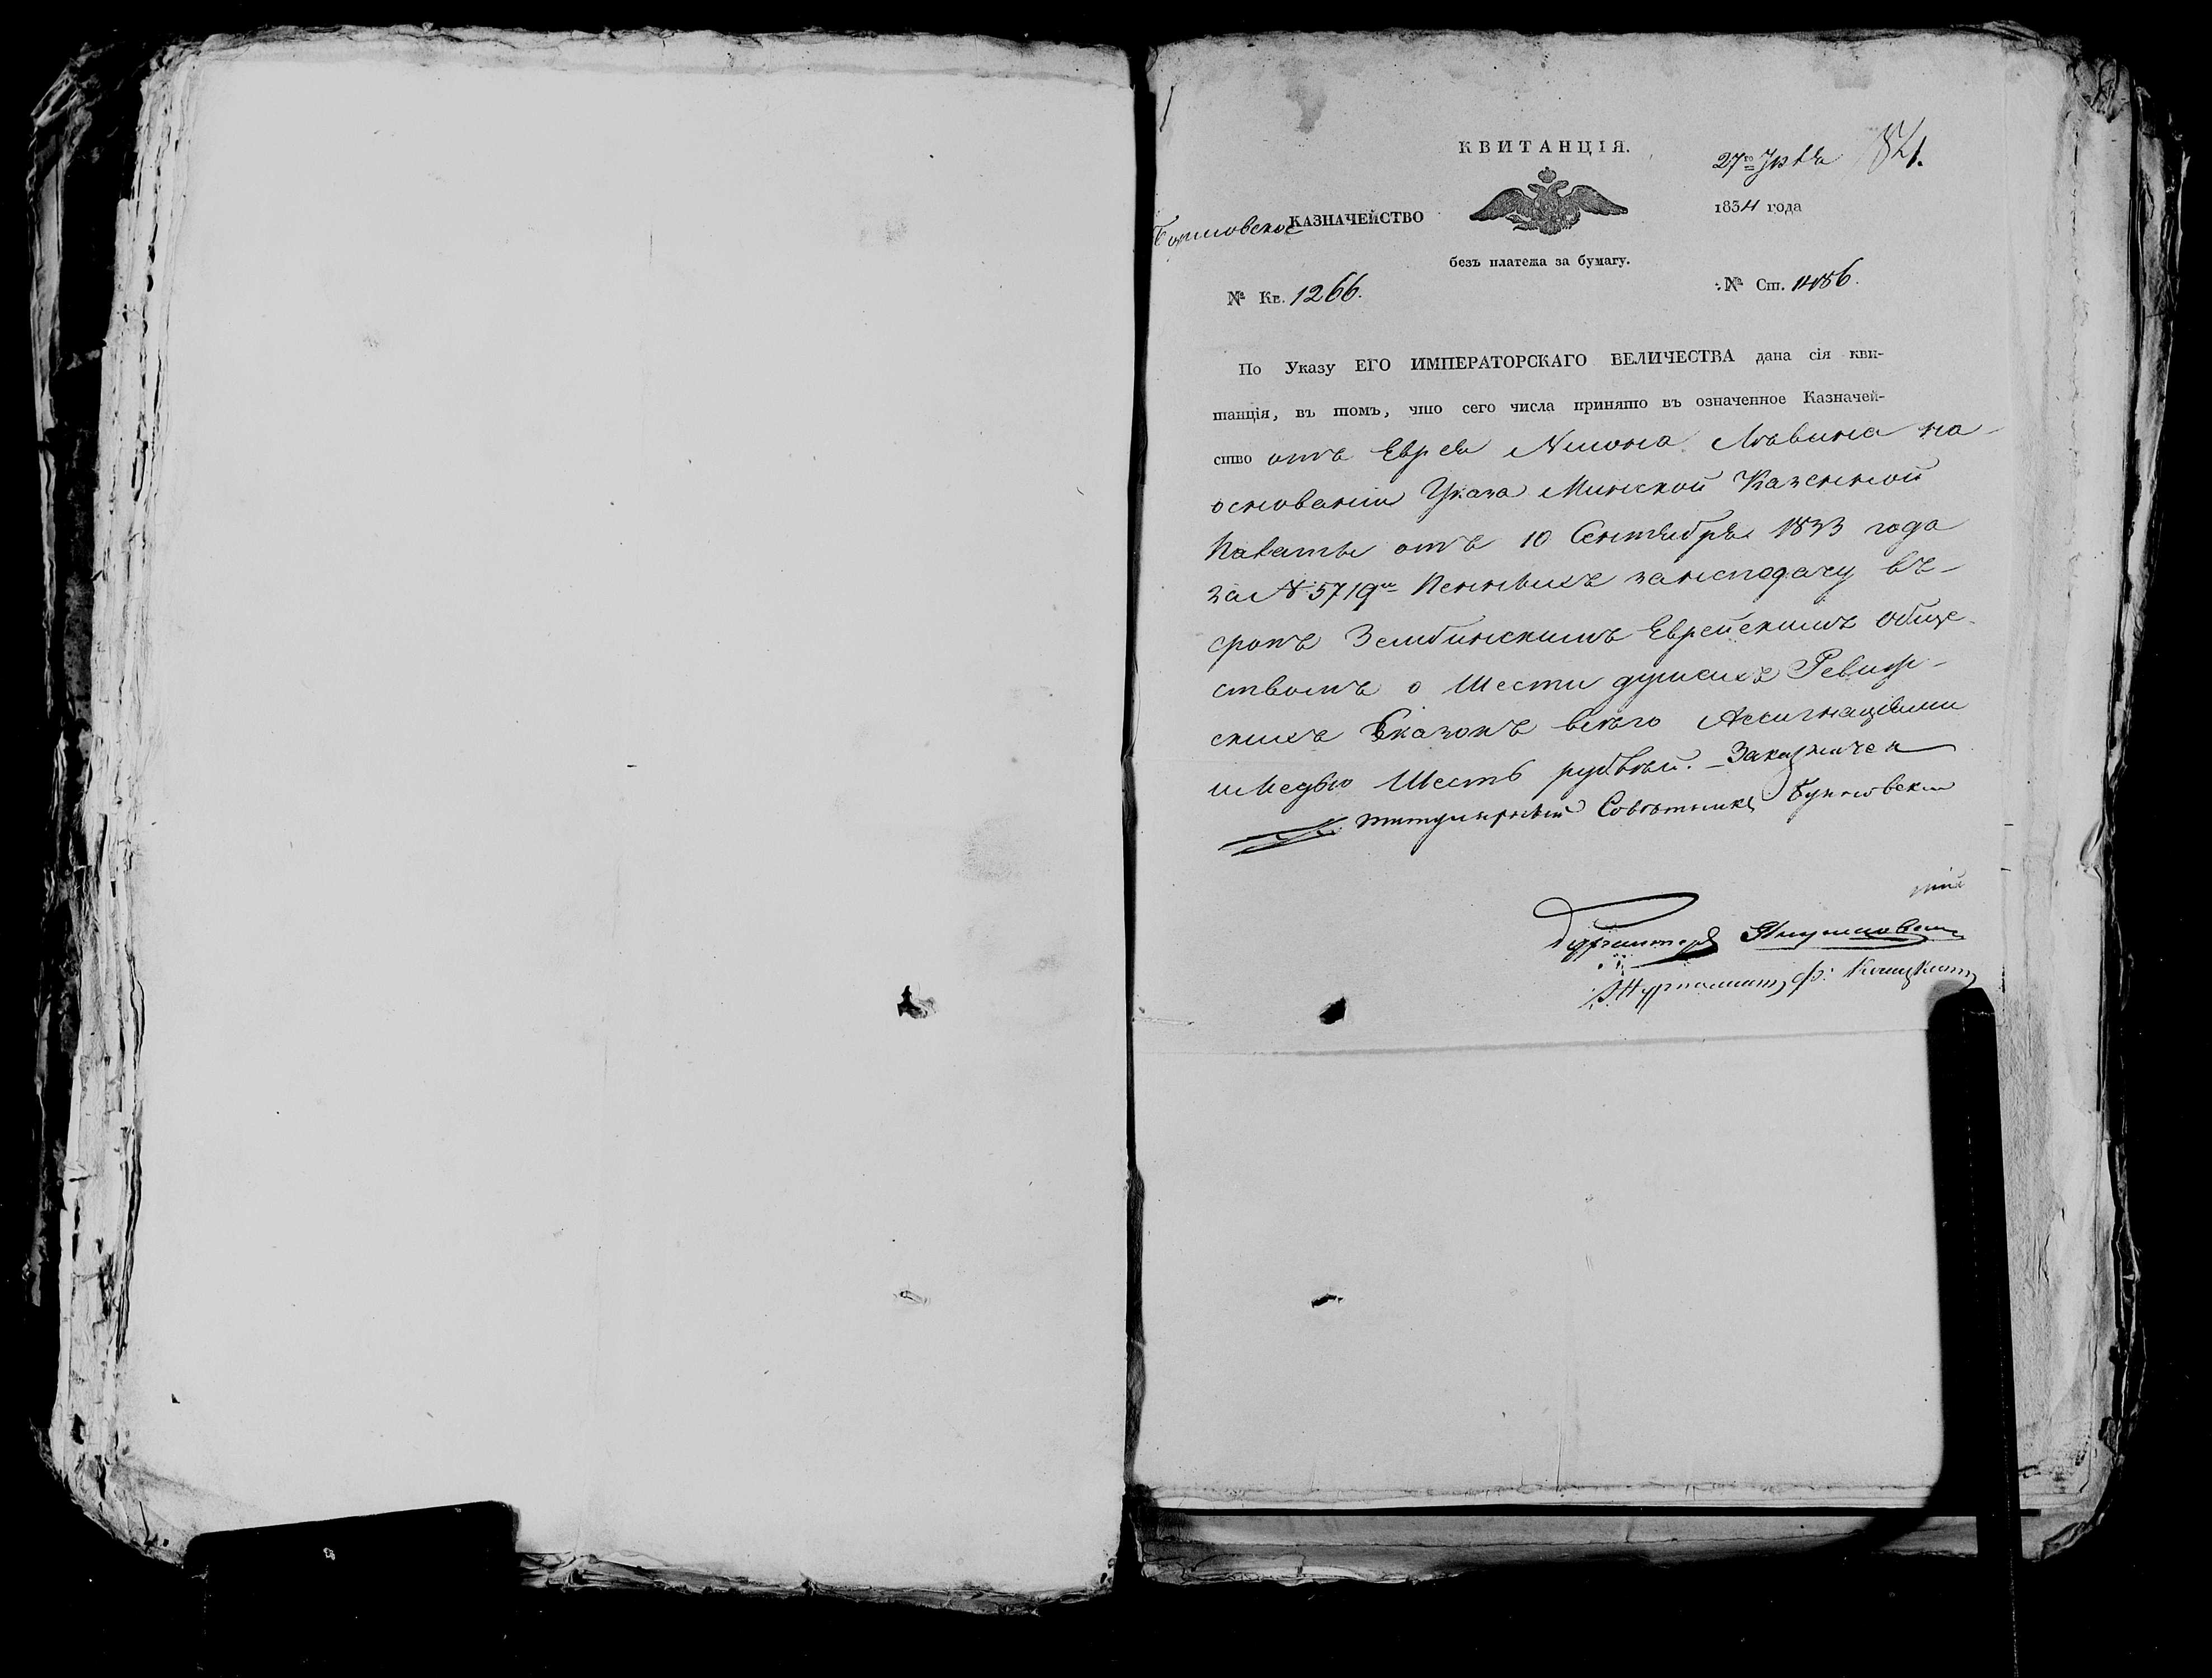 КВИТАНЦІЯ.
27го Іюля
1834 года
Борисовское КАЗНАЧЕЙСТВО
безъ платежа за бумагу.
№ Кв. 1266.
№ Ст. 1486.
По Указу ЕГО ИМПЕРАТОРСКАГО ВЕЛИЧЕСТВА дана сія кви-
танція, въ томъ, что сего числа принято въ означенное Казначей-
ство отъ Еврея Лѣвина на
основаніи Указа Минской Казенной
Палаты отъ 10 Сентября 1833 года
за № 5719м Пенныхъ занеподачу въ
срокъ Зембинскимъ Еврейскимъ обще-
ствомъ о Шести душахъ Ревиз-
скихъ Сказокъ всего Ассигнаціями
и Медью Шесть рублей. Заказначея
титулярный Совѣтникъ
Бухгалтеръ
Журналистъ Ф: